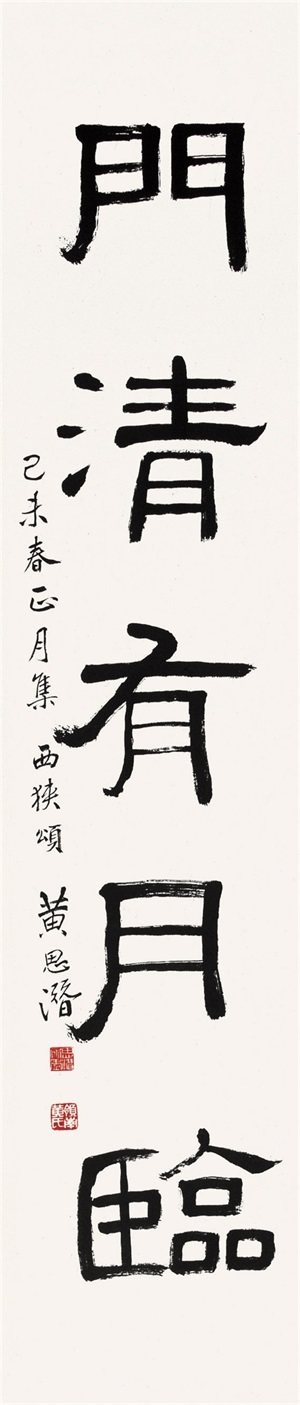 門清有月臨
己未春正月集 西狹頌
黄思潛